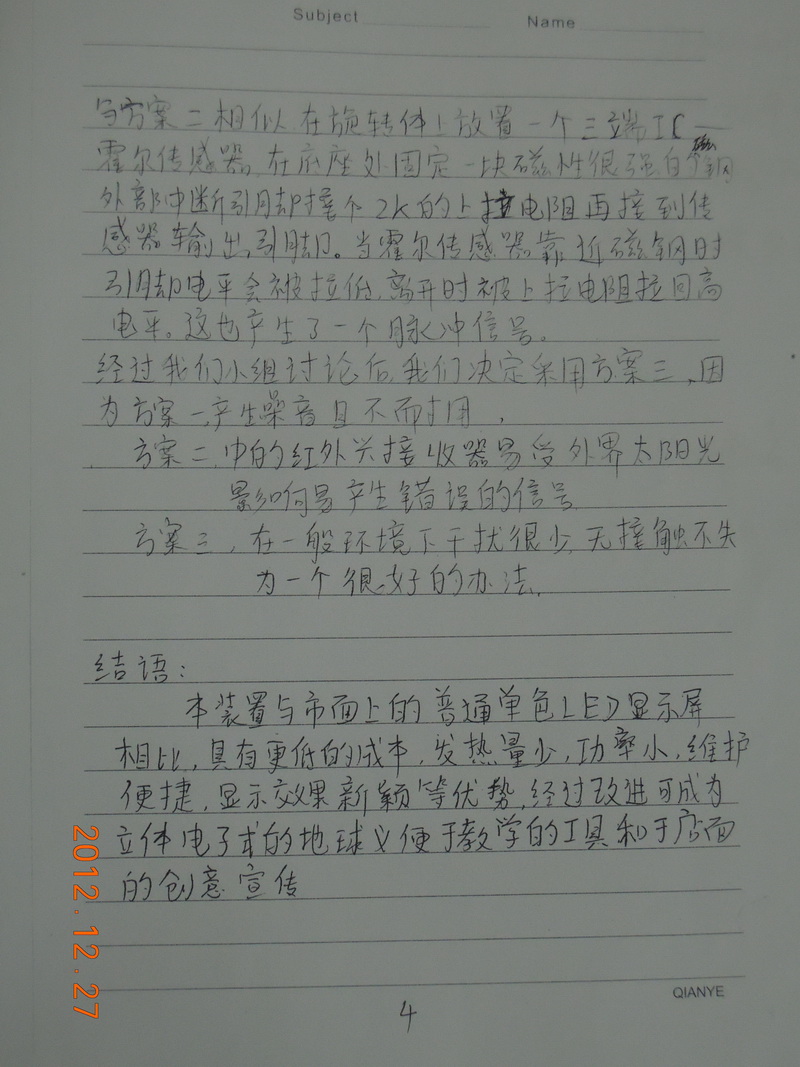 Subject Name
与方案二相似在旋转体上放置一个三端IC—
霍尔传感器,在底座处固定一块磁性很强的磁钢
外部中断引脚接个2K的上拉电阻再接到传
感器输出引脚。当霍尔传感器靠近磁钢时
引脚电平会被拉低,离开时被上拉电阻拉回高
电平。这也产生了一个脉冲信号。
经过我们小组讨论后,我们决定采用方案三,因
为方案一产生噪音且不耐用,
方案二中的红外光接收器易受外界太阳光
影响易产生错误的信号
方案三,在一般环境下干扰很少,无接触不失
为一个很好的办法.
结语:
本装置与市面上的普通单色LED显示屏
相比,具有更低的成本,发热量少,功率小,维护
便捷,显示效果新颖等优势,经过改进可成为
立体电子式的地球义便于教学的工具和于店面
的创意宣传
2012.12.27
QIANYE
4